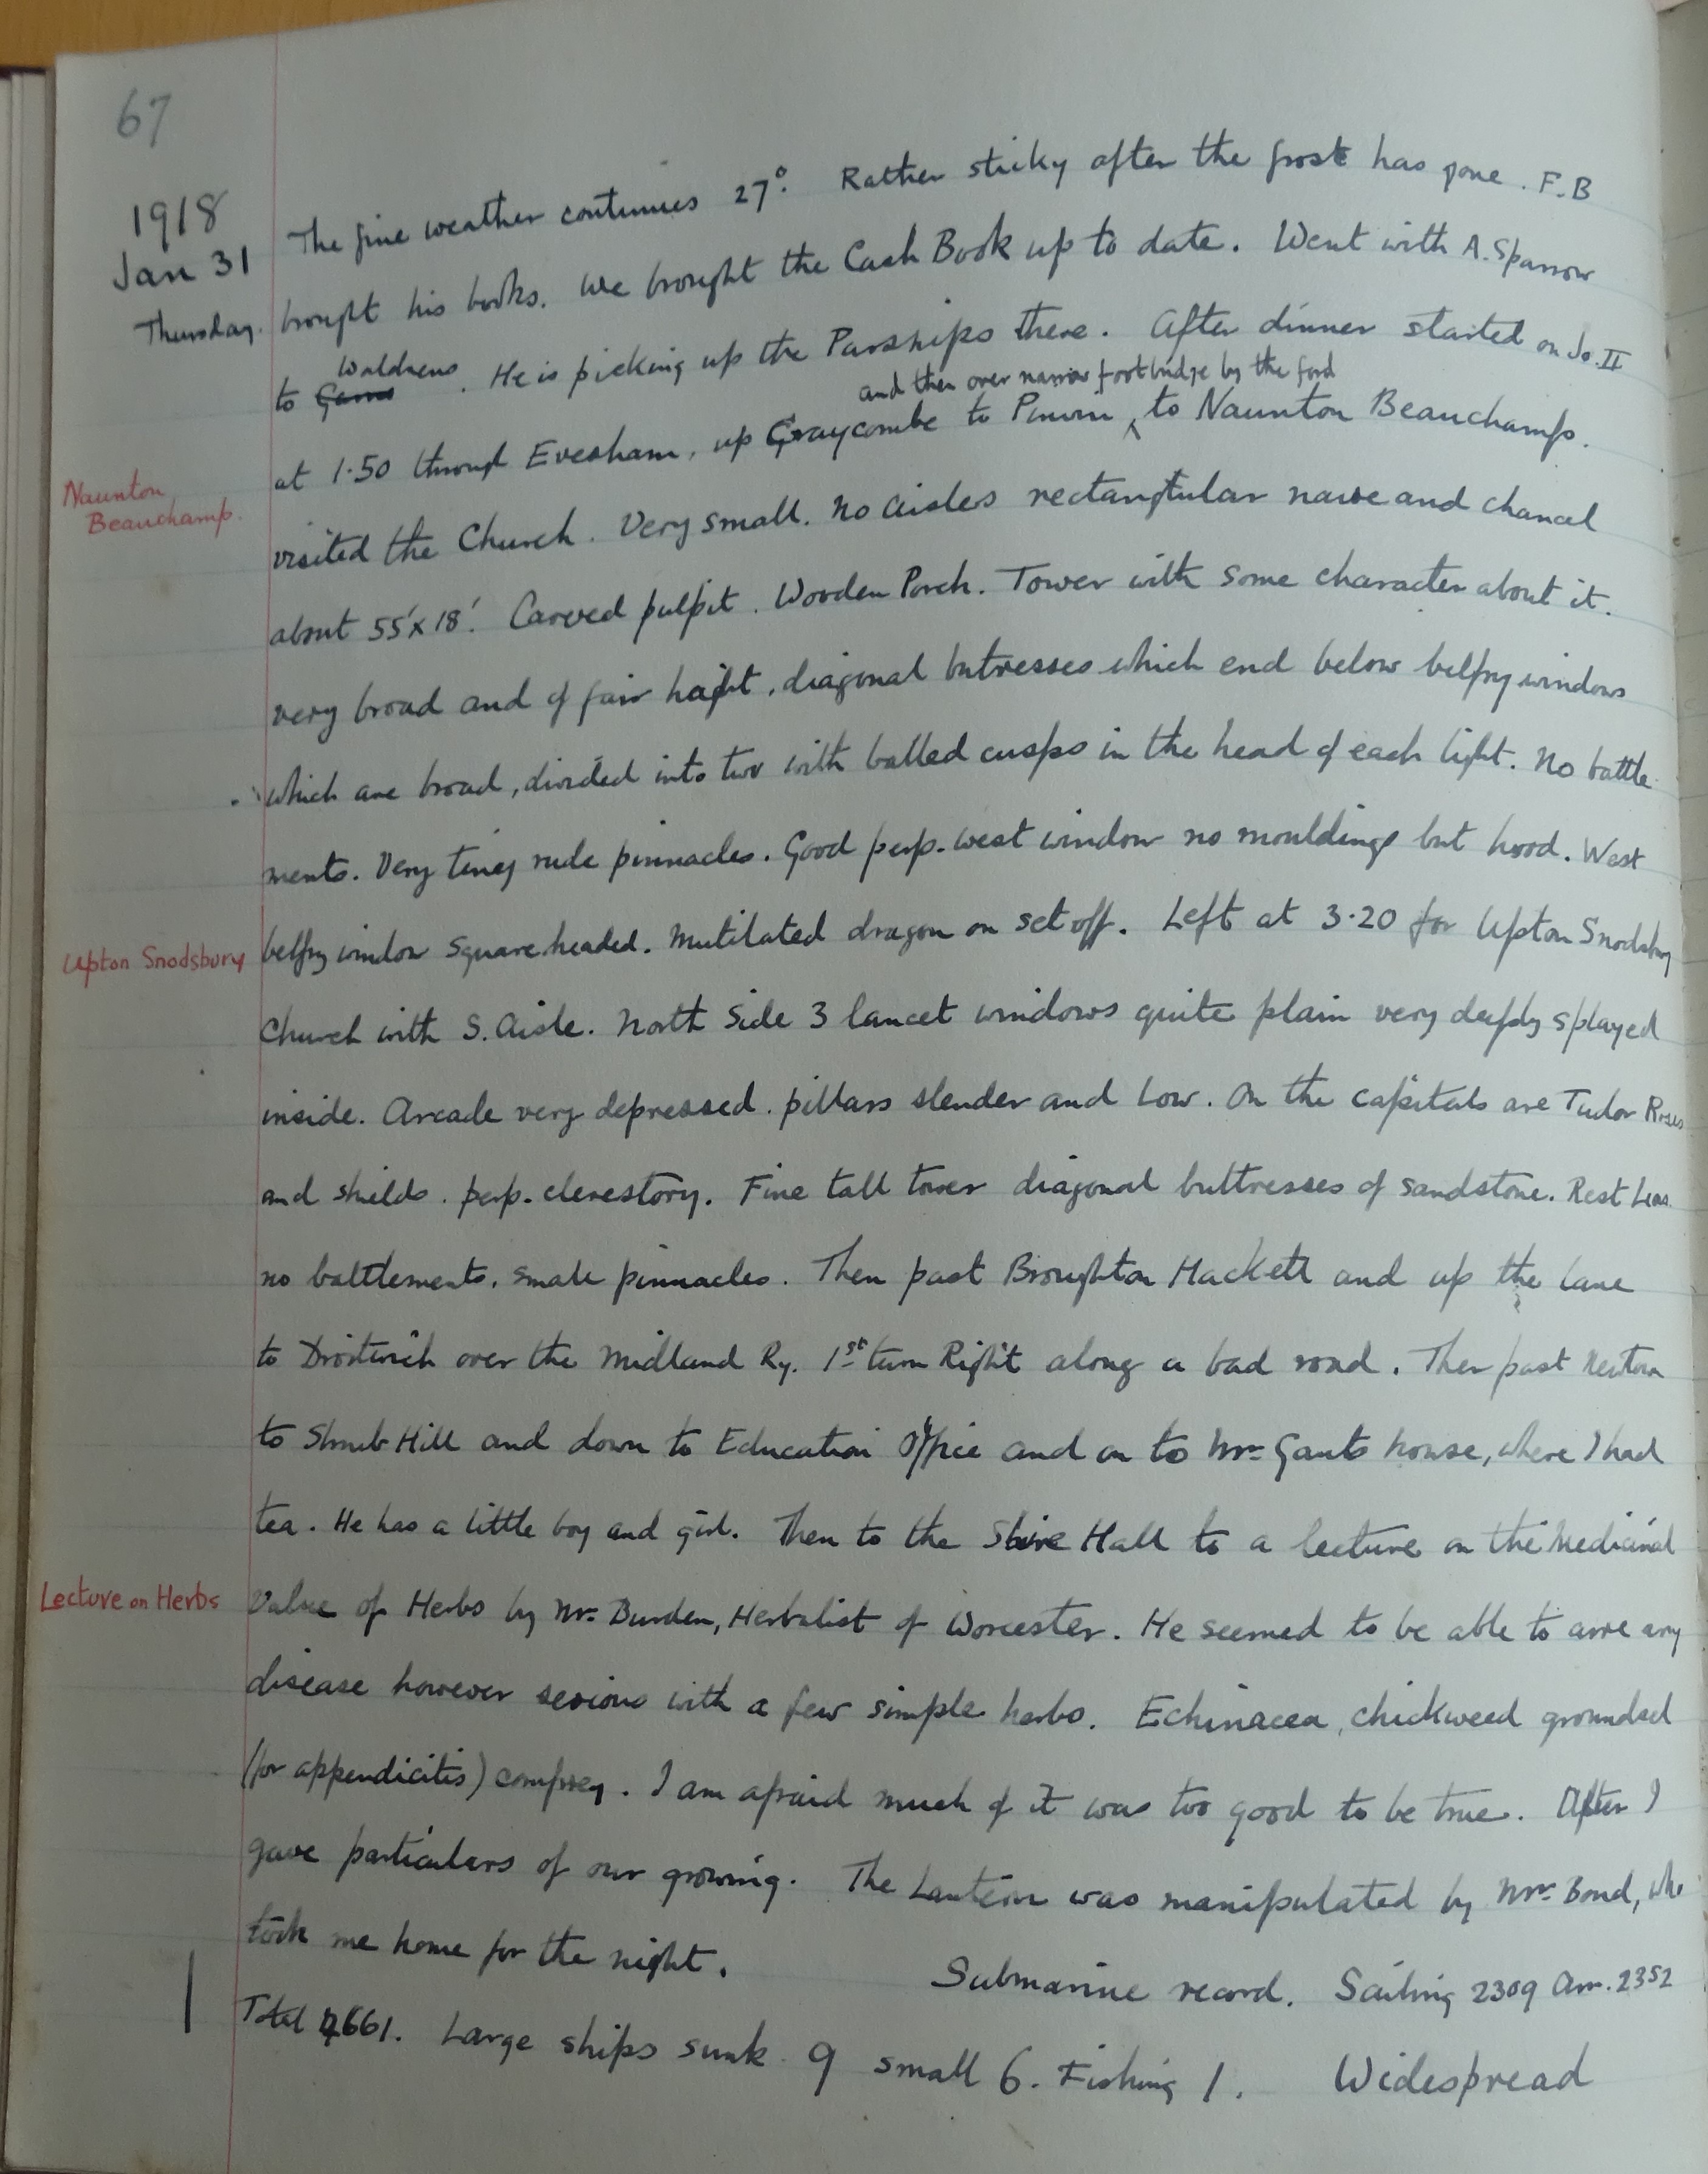 67
1918
Jan 31
Thursday.
The fine weather continues 27°. Rather sticky after the frost has gone. F.B
brought his books. We brought the Cash Book up to date. Went with A. Sparrow
Waldrens
to Gants. He is picking up the Parsnips there. After dinner started on Jo. II
and then over narrow footbridge by the ford
at 1.50 through Evesham, up Craycombe to Pinvin ^ to Naunton Beauchamp.
Naunton
Beauchamp.
visited the Church. Very small. No aisles rectangtular nave and chancel
about 55' x 18'. Carved pulpit. Wooden Porch. Tower with some character about it.
very broad and of fair haight, diagonal butresses which end below belfry windows
which are broad, divided into two with balled cusps in the head of each light. No battle
ments. Very tiney rude pinnacles. Good perp. west window no mouldings but hood. West
Upton Snodsbury
belfry window square headed. Mutilated dragon on set off. Left at 3.20 for Upton Snodsbury
Church with S. Aisle. North Side 3 lancet windows quite plain very deeply splayed
inside. Arcade very depressed. pillars slender and low. On the capitals are Tudor Roses
and shields. perp. clerestory. Fine tall tower diagonal buttresses of sandstone. Rest Leas.
no battlements. small pinnacles. Then past Broughton Hackett and up the lane
to Droitwich over the Midland Ry. 1st turn Right along a bad road. Then past Newtown
to Shrub Hill and down to Education Office and on to Mr. Gants house, where I had
tea. He has a little boy and girl. Then to the Shire Hall to a lecture on the Medicinal
Lecture on Herbs
Value of Herbs by Mr. Burden, Herbalist of Worcester. He seemed to be able to cure any
disease however serious with a few simple herbs. Echinacea, chickweed groundsel
(for appendicitis) comfrey. I am afraid much of it was too good to be true. After I
gave particulars of our growing. The Lantern was manipulated by Mr. Bond, who
took me home for the night.
Submarine record. Sailing 2309 Arr. 2352
Total 4661. Large ships sunk 9 small 6. Fishing 1. Widespread